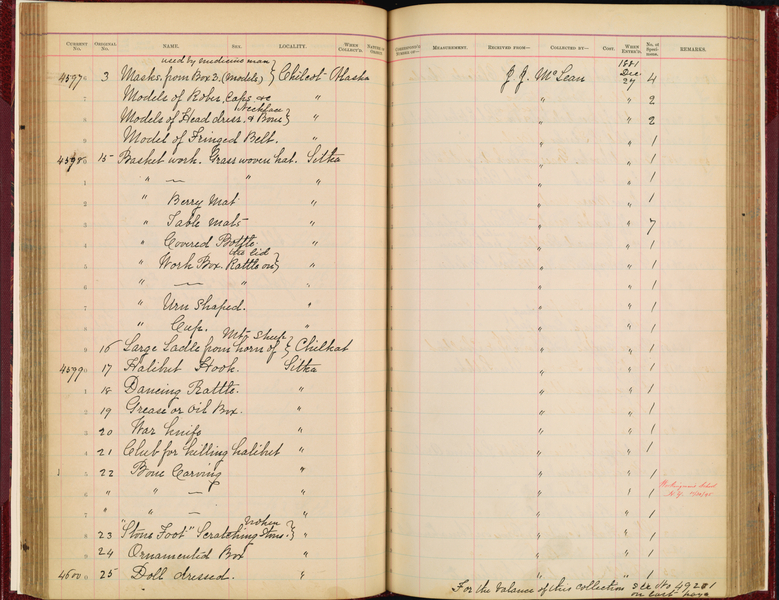 CURRENT No. ORIGINAL No. NAME. SEX. LOCALITY. WHEN COLLECT'D. NATURE OF OBJECT. MEASUREMENT. RECEIVED FROM— COLLECTED BY— COST. WHEN ENTER'D. No. of Speci- mens. REMARKS.
used by medicine man 1881
45976 3 Masks from Box 3. (models) } Chilcot Alaska J. J. McLean Dec. 27 4
7 Models of Robes, Caps &c " " " 2
Necklace
8 Models of Head dress. & Bone } " " " 2
9 Model of Fringed Belt. " " " 1
45980 15 Basket work. Grass woven hat. Sitka " " 1
1 " — " " " " 1
2 " Berry Mat " " " 1
3 " Table mats " " " 7
4 " Covered Bottle. " " " 1
lid
5 " Work Box. Rattle on } " " " 1
6 " — " " " " 1
7 " Urn Shaped. " " " 1
8 " Cup. " " " 1
Mtn Sheep
9 16 Large Ladle from horn of } Chilkat " " 1
45990 17 Halibut Hook. Sitka " " 1
1 18 Dancing Rattle. " " " 1
2 19 Grease or oil Box. " " " 1
3 20 War knife " " " 1
4 21 Club for killing halibut " " " 1
5 22 Bone Carving " " " 1
6 " " — " " " 1
7 " " — " " " 1
8 23 "Stone Foot" Scratching Stone. } " " " 1
9 24 Ornamented Box " " " 1
46000 25 Doll dressed. " " " 1
For the balance of this collection see No 49201
on last page